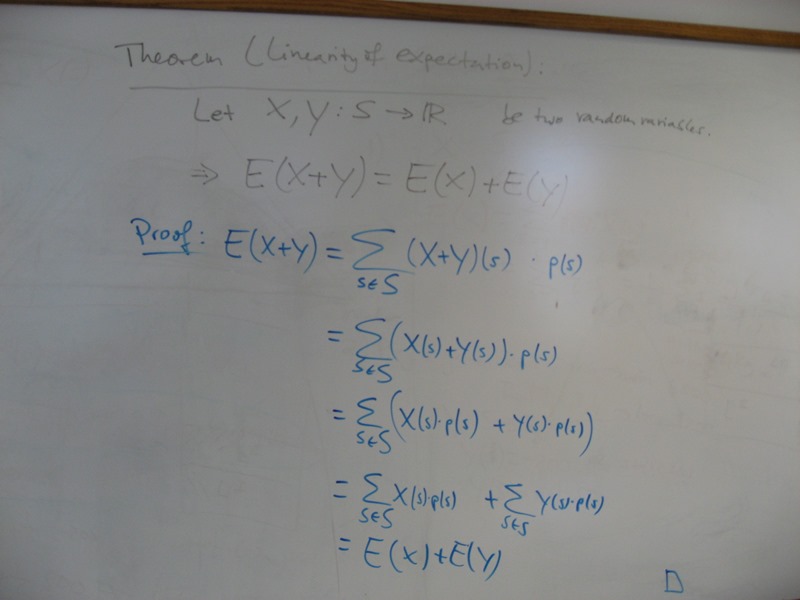 Theorem (Linearity of expectation):
Let X, Y : S → ℝ be two random variables.
⇒ E(X+Y) = E(X) + E(Y)
Proof: E(X+Y) = ∑_{s∈S} (X+Y)(s) · p(s)
= ∑_{s∈S} (X(s)+Y(s)) · p(s)
= ∑_{s∈S} (X(s)·p(s) + Y(s)·p(s))
= ∑_{s∈S} X(s)·p(s) + ∑_{s∈S} Y(s)·p(s)
= E(X)+E(Y)
□